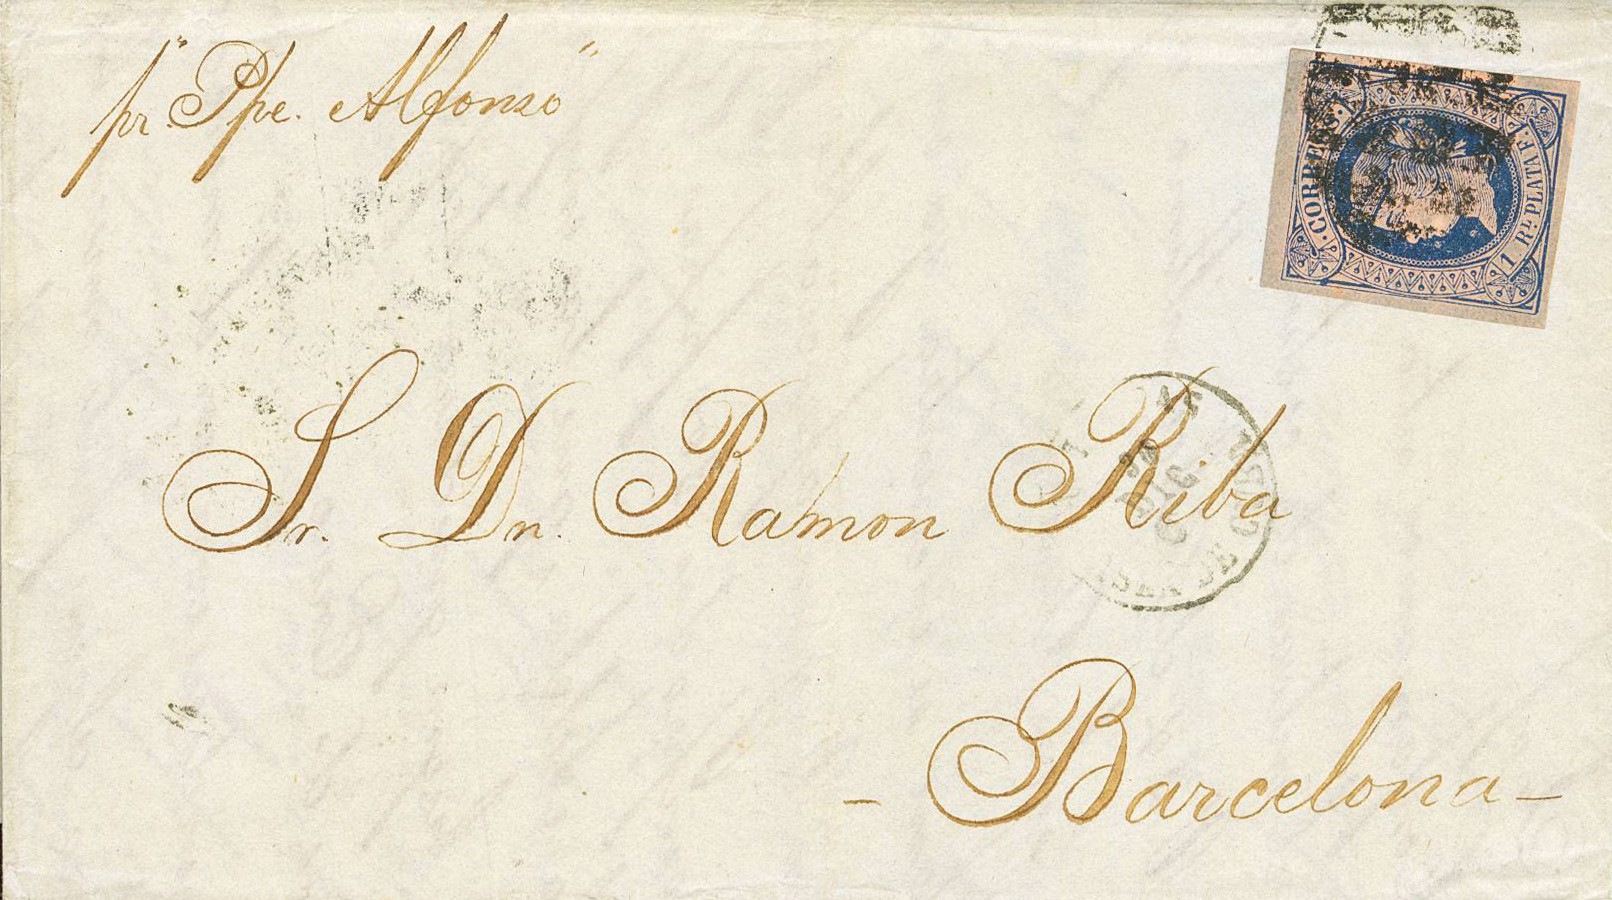 pr. "Ppe. Alfonso"
CORREOS.
1 RL PLATA F.
Sr. Dn. Ramon Riba
DIC
- Barcelona -